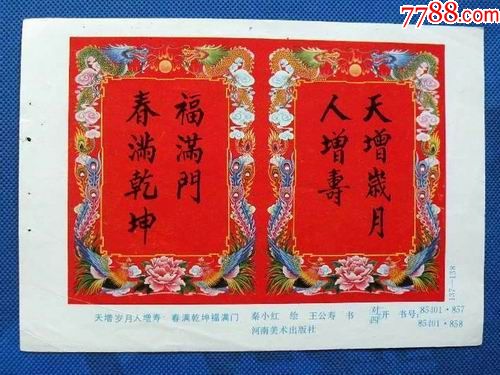 7788.com
天增歲月
人增壽
春滿乾坤
福滿門
天增岁月人增寿 春满乾坤福满门 秦小红 绘 王公寿 书 对四开 书号: 85401·857
85401·858
河南美术出版社
137—138